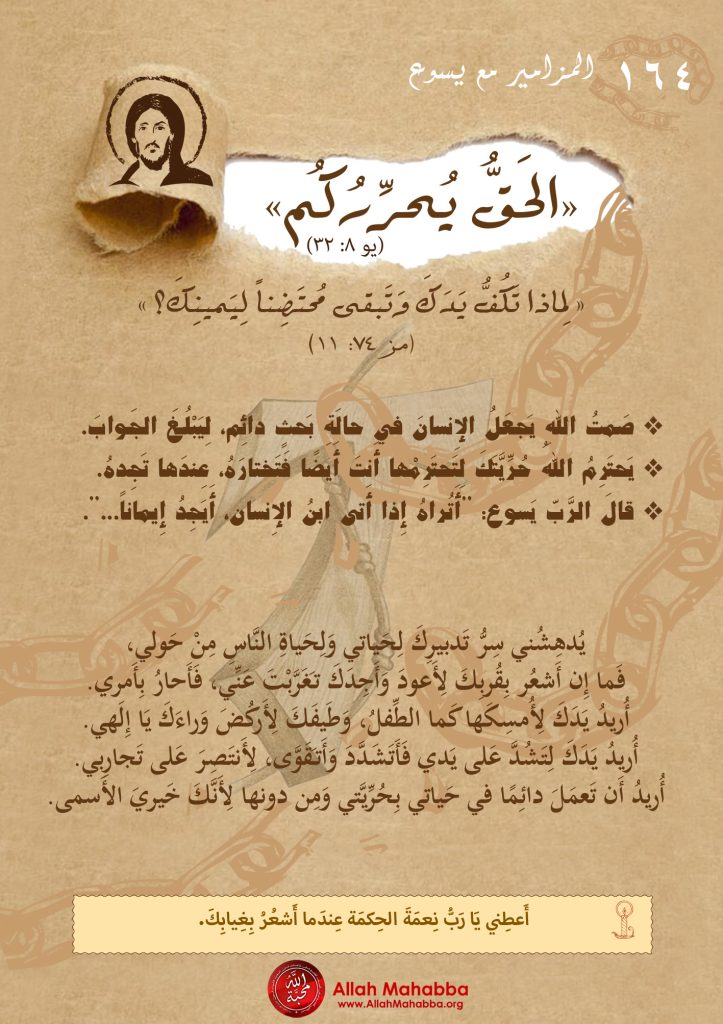 ١٦٤ المزامير مع يسوع
«الحَقُّ يُحرِّرُكُم»
(يو ٨: ٣٢)
« لِماذا تَكُفُّ يَدَكَ وَتَبقى مُحتَضِناً لِيَمينِكَ؟ »
(مز ٧٤: ١١)
❖ صَمتُ اللهِ يَجعَلُ الإنسانَ في حالَةِ بَحثٍ دائِم، لِيَبْلُغَ الجَوابَ.
❖ يَحتَرِمُ اللهُ حُرِّيَّتَكَ لِتَحتَرِمْها أَنتَ أَيضًا فَتَختارَهُ، عِندَها تَجِدهُ.
❖ قالَ الرَّبّ يَسوع: "أَتُراهُ إِذا أَتى ابنُ الإِنسان، أَيَجِدُ إِيماناً...".
يُدهِشُني سِرُّ تَدبيرِكَ لِحَياتي وَلِحَياةِ النَّاسِ مِنْ حَولي،
فَما إِن أَشعُر بِقُربِكَ لِأَعودَ وَأَجِدَكَ تغَرَّبْتَ عَنِّي، فَأَحارُ بِأَمري.
أُريدُ يَدَكَ لِأُمسِكَها كَما الطِّفلُ، وَطَيفَكَ لِأَركُضَ وَراءَكَ يَا إِلَهي.
أُريدُ يَدَكَ لِتَشُدَّ عَلى يَدي فَأَتَشَدَّدَ وَأَتَقَوَّى، لِأَنتَصِرَ عَلى تَجارِبي.
أُريدُ أَن تَعمَلَ دائِمًا في حَياتي بِحُرِّيَّتي وَمِن دونها لِأَنَّكَ خَيريَ الأَسمى.
أَعطِني يَا رَبُّ نِعمَةَ الحِكمَة عِندَما أَشعُرُ بِغِيابِكَ.
الله محبّة
Allah Mahabba
www.AllahMahabba.org